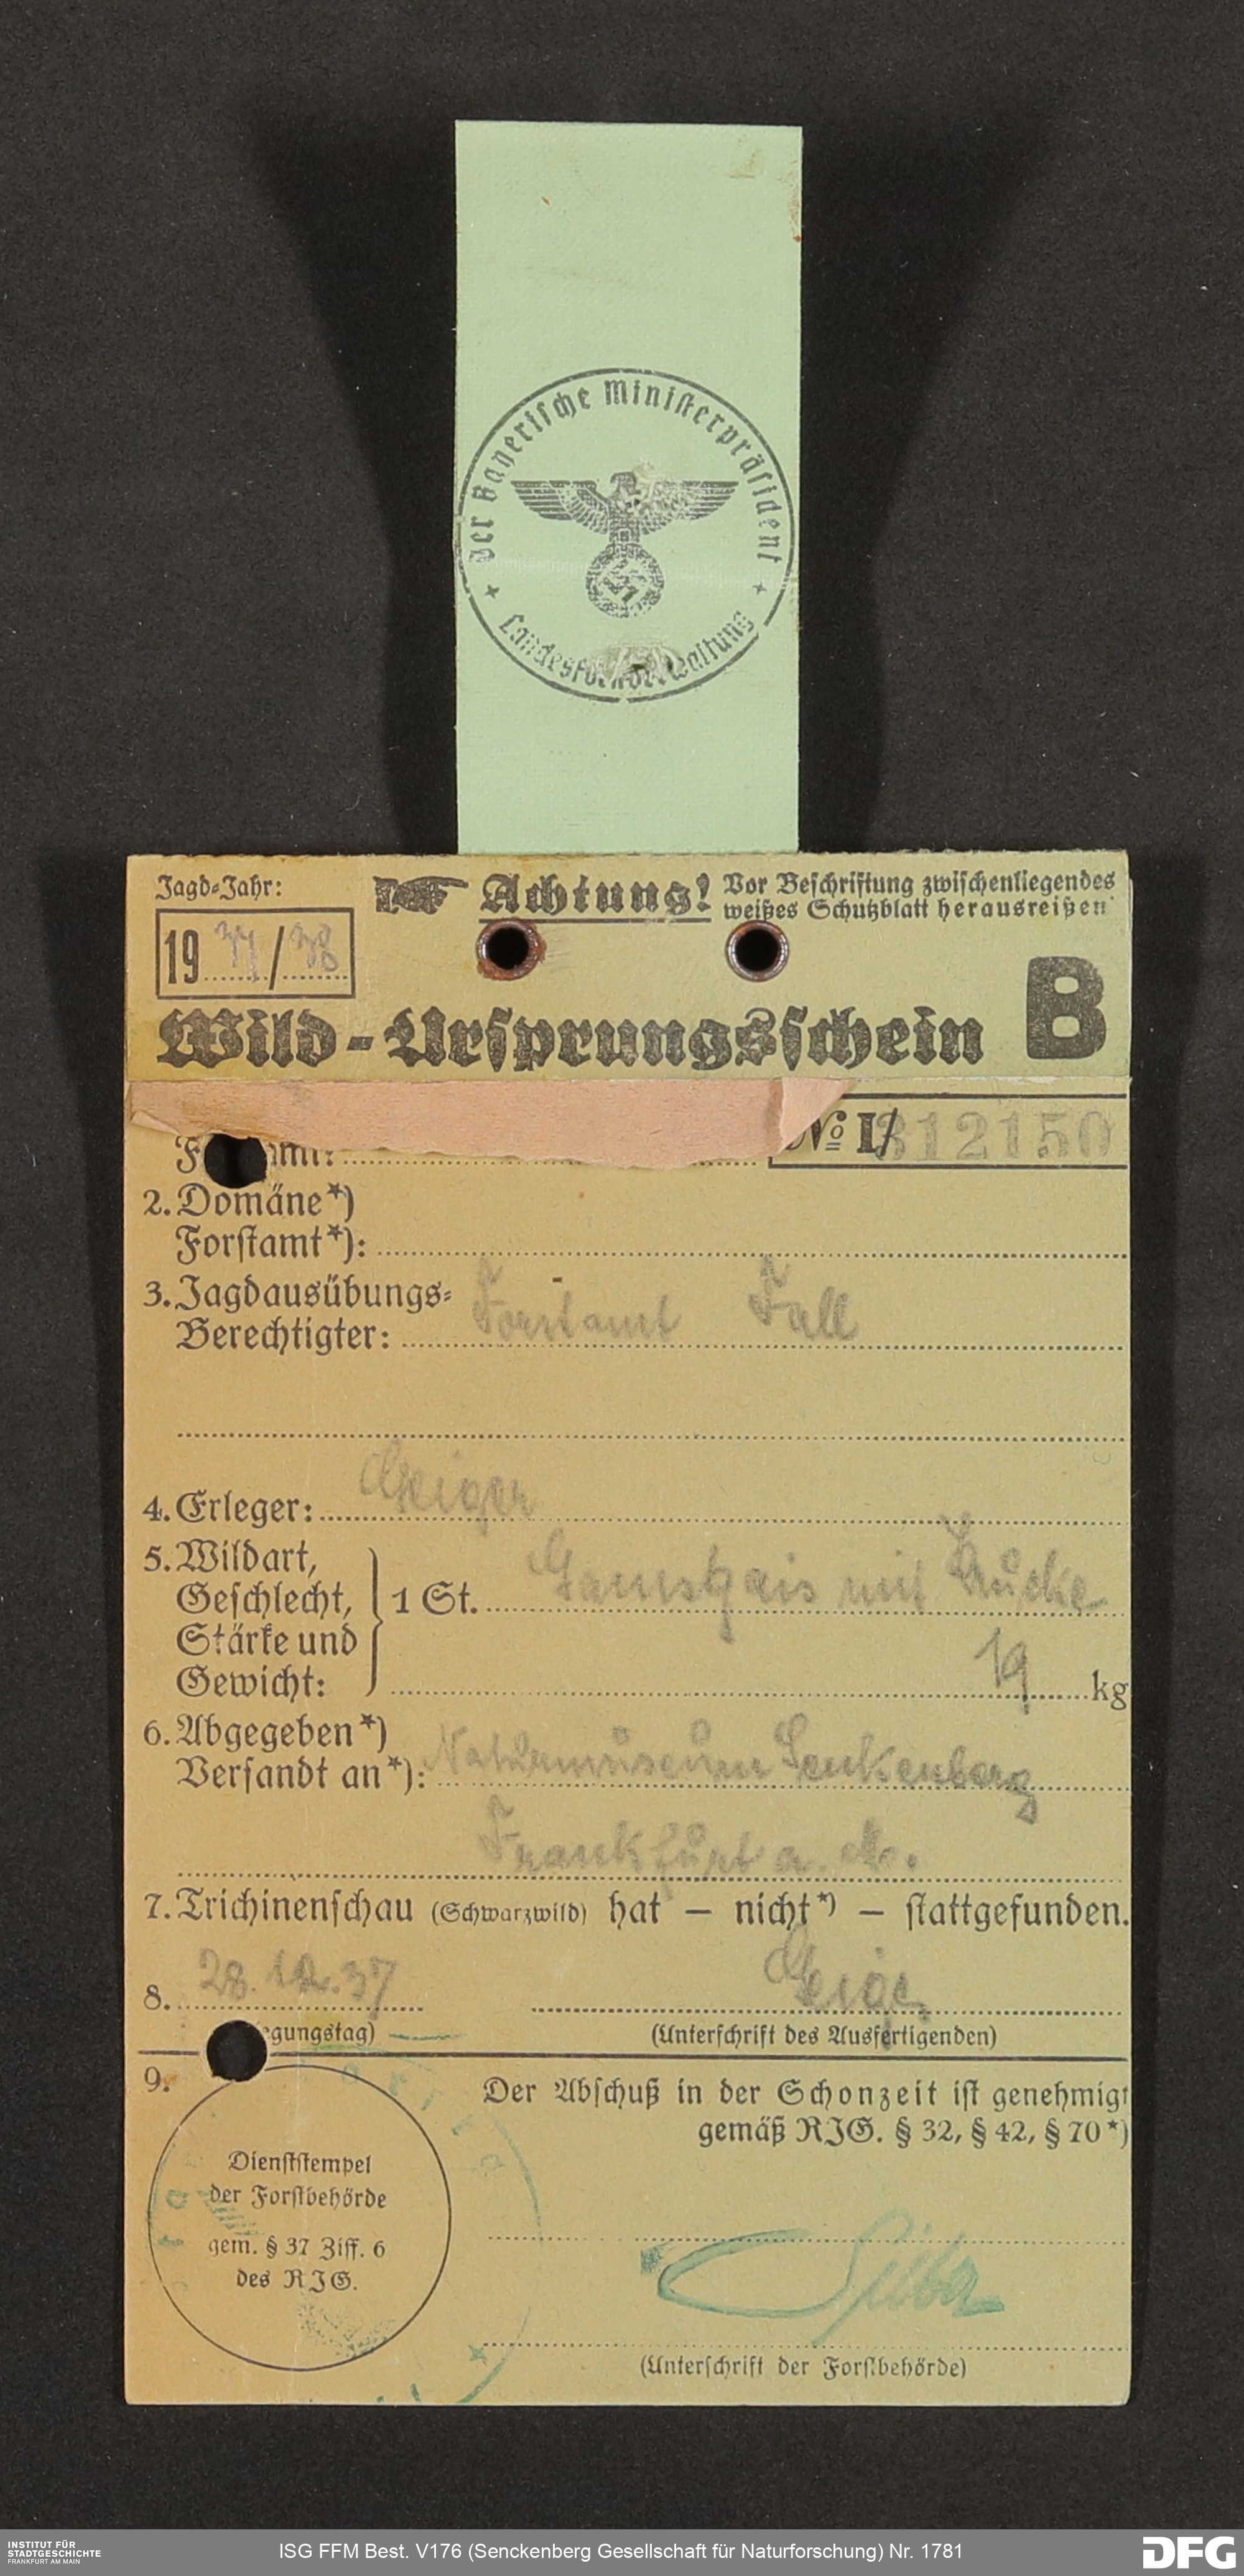 Der Bayerische Ministerpräsident
Landesforstverwaltung
Jagd-Jahr:
1937/38
Achtung! Vor Beschriftung zwischenliegendes
weißes Schutzblatt herausreißen
Wild-Ursprungsschein B
No I/312150
2. Domäne*)
Forstamt*):
3. Jagdausübungs-
Berechtigter: Forstamt Fall
4. Erleger: Geiger
5. Wildart,
Geschlecht,
Stärke und
Gewicht:
1 St. Gamsgais mit Krucke
19 kg
6. Abgegeben*)
Versandt an*): Naturmuseum Senkenberg
Frankfurt a. M.
7. Trichinenschau (Schwarzwild) hat – nicht*) – stattgefunden.
8. 28.12.37 Geiger
egungstag) (Unterschrift des Ausfertigenden)
9.
Dienststempel
der Forstbehörde
gem. § 37 Ziff. 6
des RJG.
Der Abschuß in der Schonzeit ist genehmigt
gemäß RJG. § 32, § 42, § 70*)
(Unterschrift der Forstbehörde)
INSTITUT FÜR
STADTGESCHICHTE
FRANKFURT AM MAIN
ISG FFM Best. V176 (Senckenberg Gesellschaft für Naturforschung) Nr. 1781
DFG